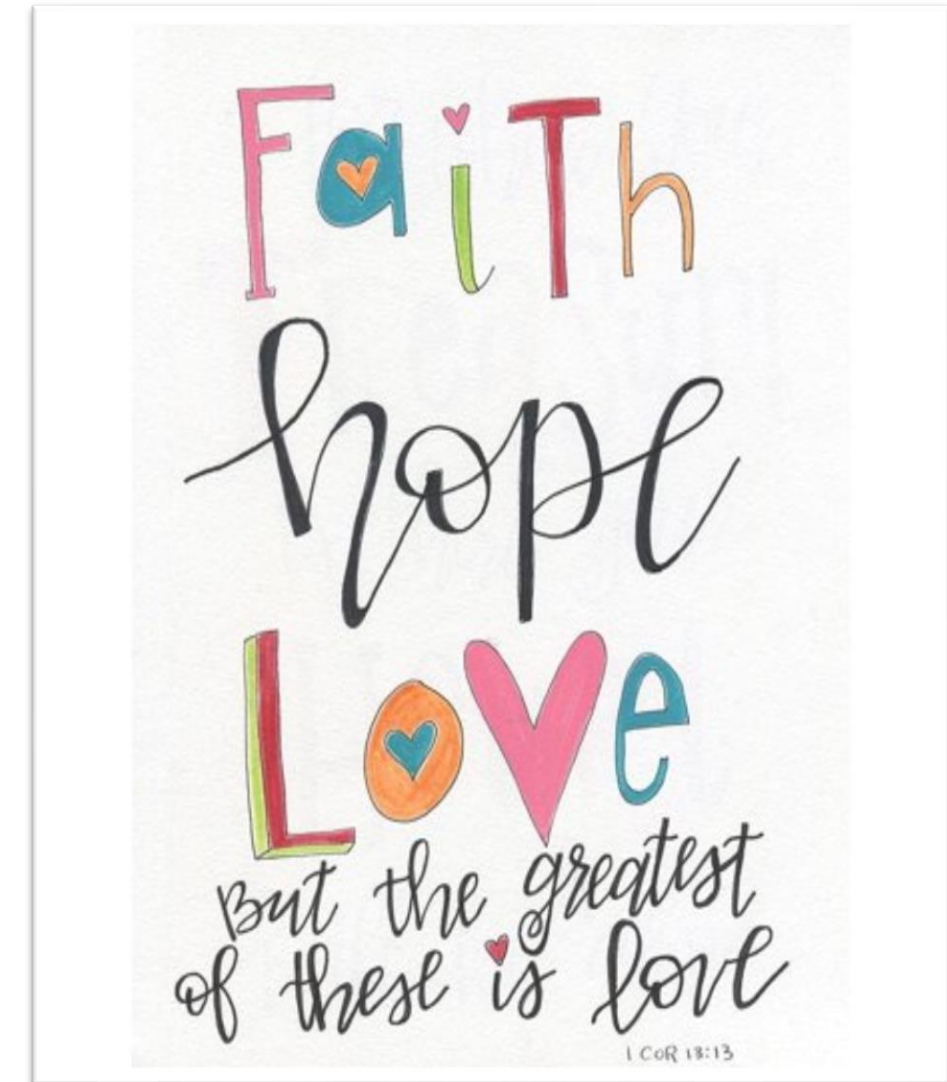 FaiTh
hope
LoVe
But the greatest
of these is love
1 COR 13:13